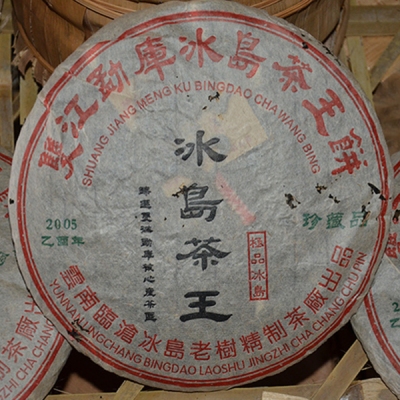 雙江勐庫冰島茶王餅
SHUANG JIANG MENG KU BINGDAO CHA WANG BING
冰島茶王
2005
乙酉年
珍藏品
極品冰島
雲南臨滄冰島老樹精制茶廠出品
YUNNAN LINGCHANG BINGDAO LAOSHU JINGZHI CHA CHANG CHU PIN